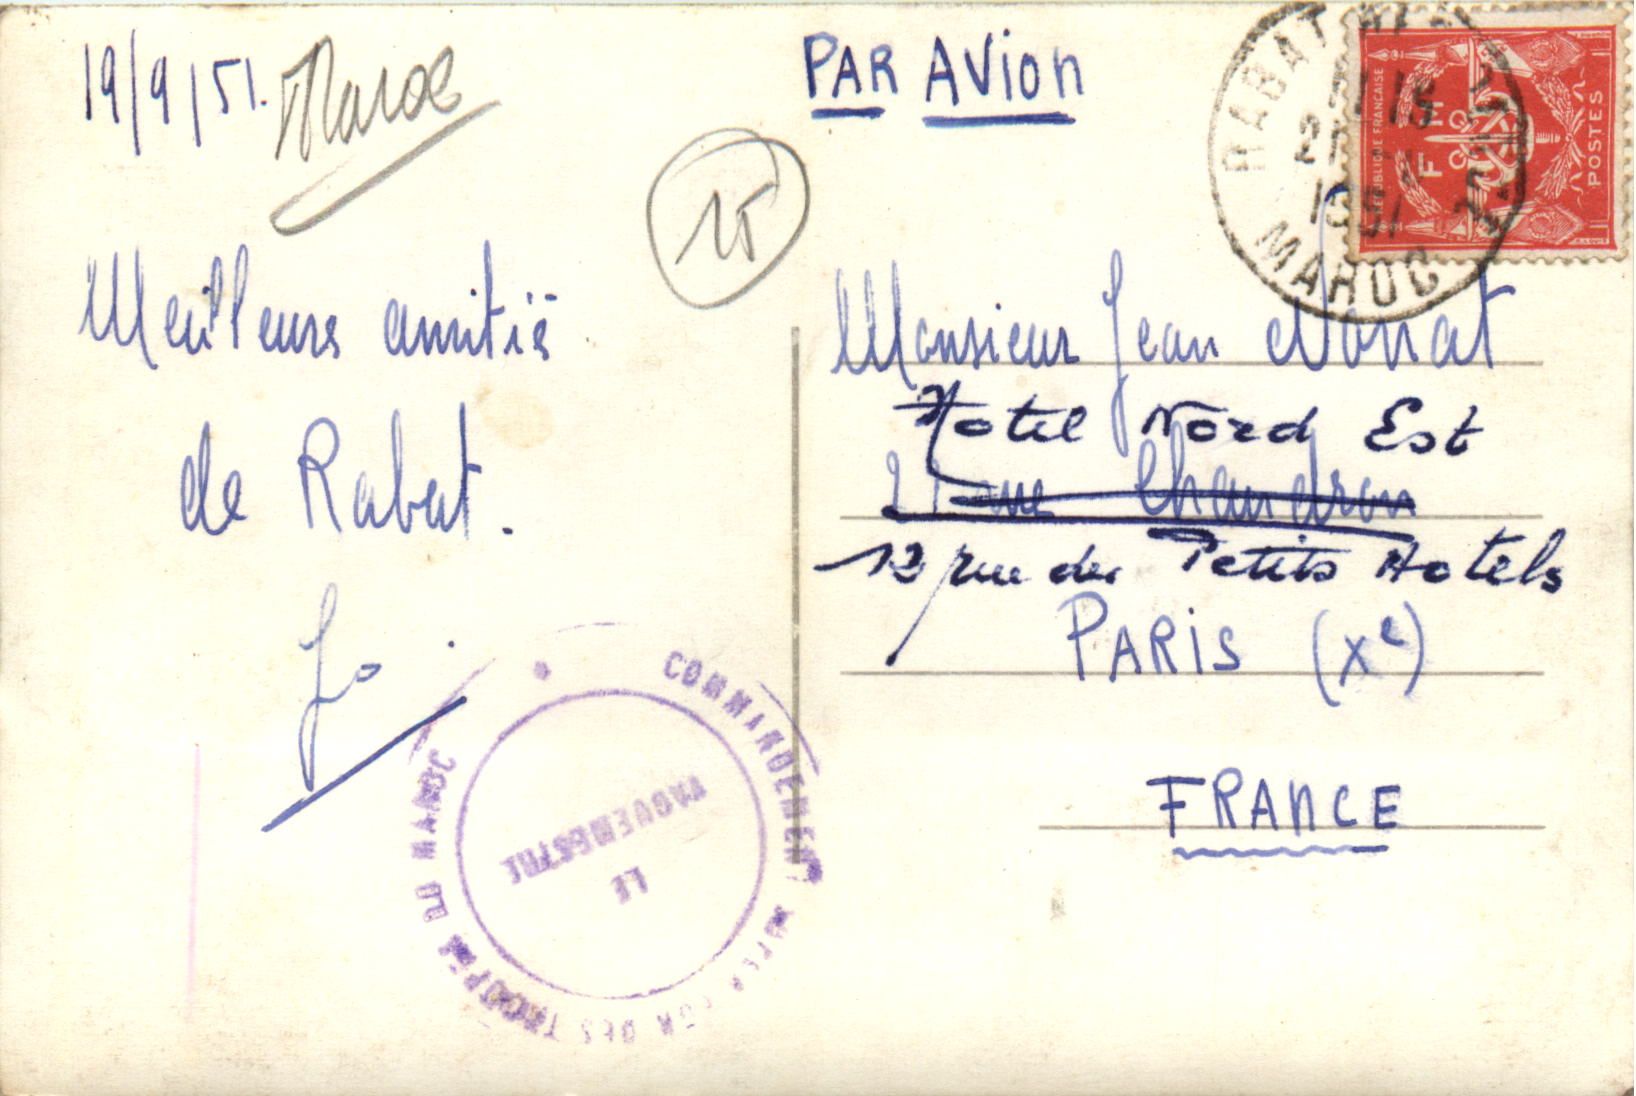 19/9/51.
Maroc
15
Meilleurs amitiés
de Rabat.
Jo
PAR AVION
RABAT
21
1951
MAROC
RÉPUBLIQUE FRANCAISE
F M
POSTES
Monsieur Jean Nonat
Hotel Nord Est
21 rue Chaudron
12 rue des Petits Hotels
PARIS (Xe)
FRANCE
COMMANDEMENT SUPERIEUR DES TROUPES DU MAROC
LE
VAGUEMESTRE